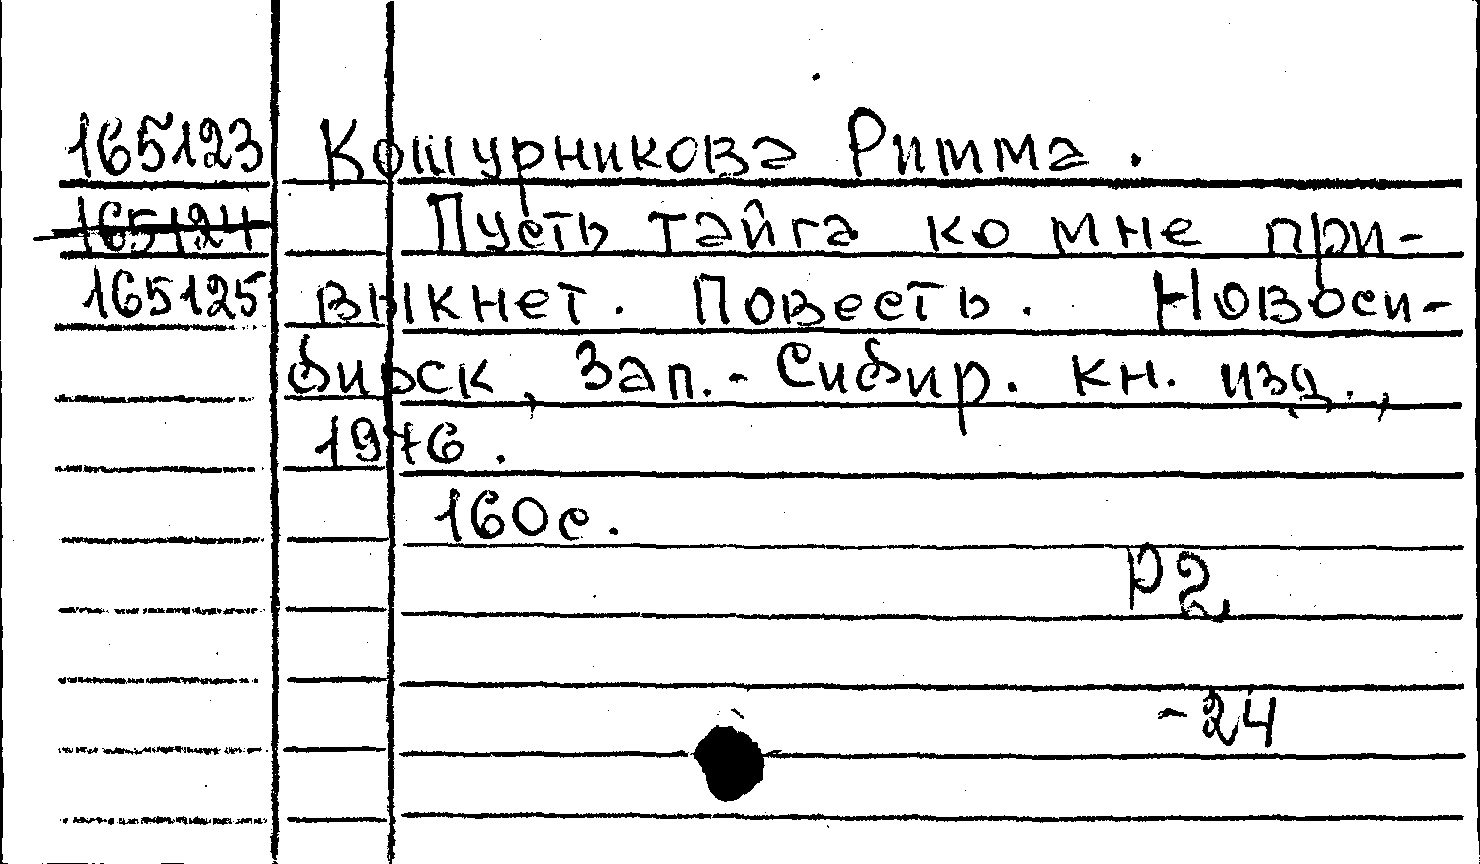 165123 Кошурникова Римма.
165124 Пусть тайга ко мне при-
165125 выкнет. Повесть. Новоси-
бирск, Зап.-Сибир. кн. изд.,
1976.
160с.
Р2
-24